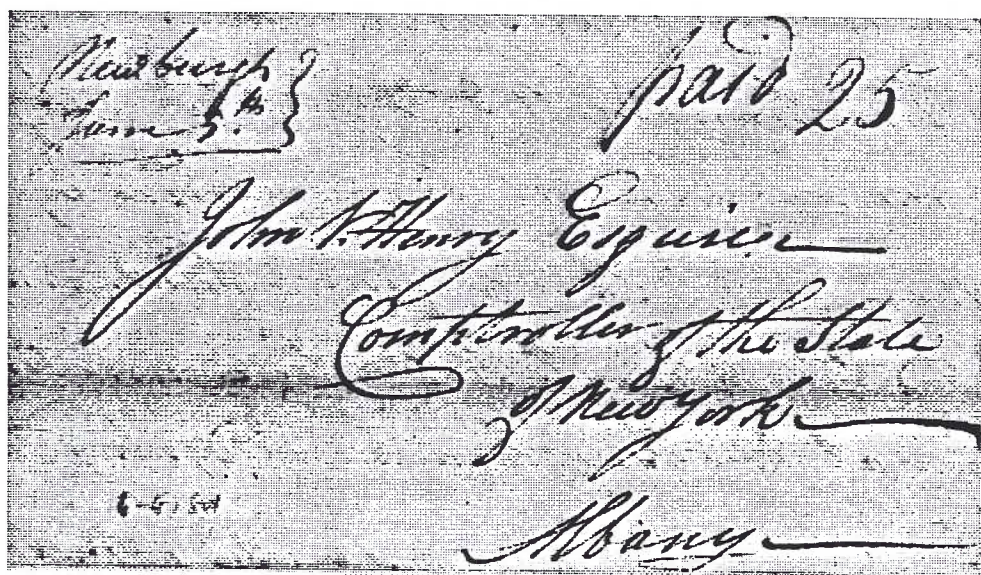 Newburgh
June 5.th
paid 25
John V. Henry Esquire
Comptroller of the State
of New York
Albany